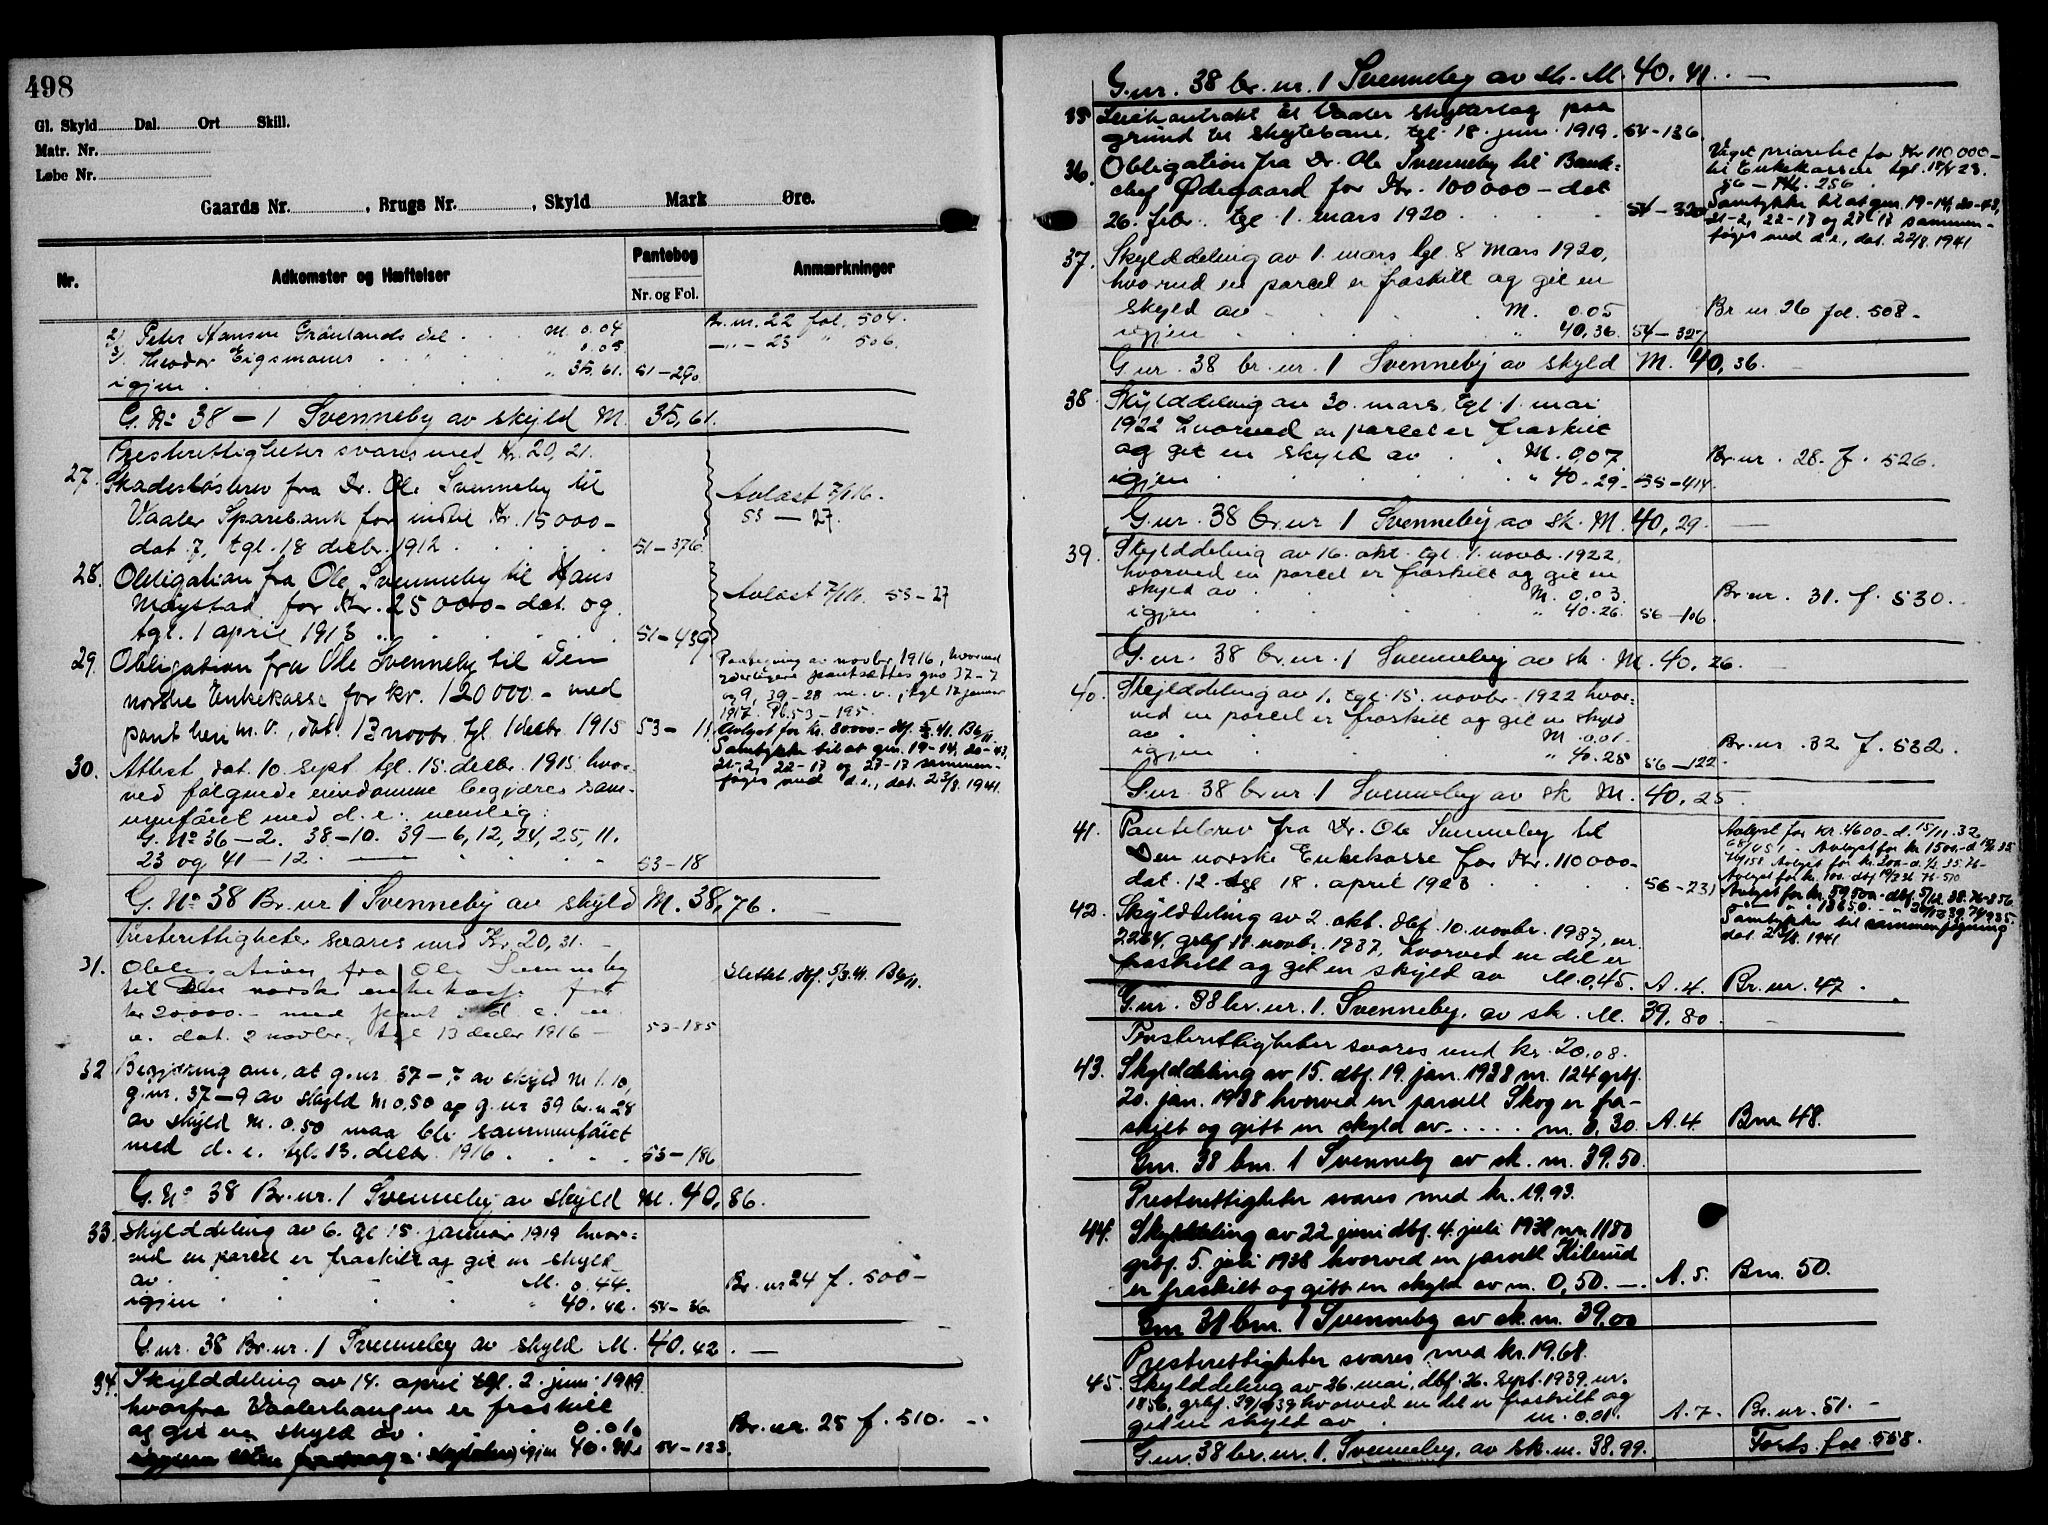 498
Gl. Skyld Dal. Ort Skill.
Matr. Nr.
Løbe Nr.
Gaards Nr. , Brugs Nr. , Skyld Mark Øre.
Nr. Adkomster og Hæftelser Pantebog Anmærkninger
Nr. og Fol.
2/ Peter Hansen Grönlands del M. 0.04 Br. nr. 22 fol. 504.
3/ Theodor Eigsmoens " 0.05 —"— 23 " 506.
igjen " 35.61. 51-290
G. No 38 - 1 Svenneby av skyld M. 35,61.
Presterettigheter svares med Kr. 20,21.
27. Skadesløsbrev fra Dr. Ole Svenneby til
Vaaler Sparebank for indtil Kr. 15000-
dat. 7, tgl. 18 decbr. 1912 51-376.
Avlæst 7/116.
53 - 27.
28. Obligation fra Ole Svenneby til Hans
Møystad for Kr. 25000- dat. og
tgl. 1 april 1913 51-439
Avlæst 7/116. 53-27
29. Obligation fra Ole Svenneby til Den
norske Enkekasse for kr. 120000- med
pant heri m.v., dat. 12 novbr. tgl. 1 decbr 1915 53-11
av novbr 1916, hvorved
pantsættes gno 37-7
og 9, 39-28 m.v., tgl 17 januar
1917. Pb. 53-195.
Avlyst for kr. 80000.- dbf. 5/3.41. B6/11.
Samtykke til at gnr. 19-14, 20-43,
21-2, 22-17 og 27-17 sammen-
føges med d.e., dat. 23/8 1941.
30. Attest dat. 10. sept. tgl. 15. decbr. 1915 hvor=
ved følgende eiendomme begjæres sam-
menføiet med d.e. nemlig:
G. No 36-2. 38-10. 39-6, 12, 24, 25, 11.
23 og 41-12. 53-18
G. No 38 Br. nr 1 Svenneby av skyld M. 38,76.
Presterettigheter svares med Kr. 20,31.
31. Obligation fra Ole Svenneby
til Den norske enkekasse for
kr 20.000.- med pant i d.e. m.
v. dat. 2 novbr., tgl 13 decbr 1916 - 53-185
Slettet, dbf. 5/3.41. B6/11.
32 Begjæring om, at g. nr. 37-7 av skyld M 1.10,
g. nr. 37-9 av skyld M 0,50 og g. nr 39 br. n 28
av skyld M. 0,50 maa bli sammenføiet
med d.e. tgl. 13. decbr. 1916. 53-186
G. No 38 Br. nr. 1 Svenneby av skyld M. 40,86.
33. Skylddeling av 6. tgl 15. januar 1919 hvor=
ved en parcel er fraskilt og git en skyld
av M. 0.44. Br. nr 24 f. 500-
igjen " 40.42. 54-36
G. nr. 38 Br. nr. 1 Svenneby av skyld M. 40.42.
34. Skylddeling av 14. april tgl. 2. juni 1919.
hvorfra Vaalerhaugen er fraskilt
og git en skyld av 0.01. Br. nr. 25 f. 510.
igjen 40.41. 54-123.
G. nr. 38 br. nr. 1 Svenneby av sk. M. 40,41.
35 Leiekontrakt til Vaaler skytterlag paa
grund til skytebane, tgl. 18. juni 1919. 54-136.
36. Obligation fra Dr. Ole Svenneby til Bank=
chef Ødegaard for Kr. 100000- dat
26. febr. tgl 1. mars 1920 54-320
Veget prioritet for Kr 110000-
til Enkekassen tgl. 18/4 23.
56 - 256
Samtykke til at gnr. 19-14, 20-43,
21-2, 22-17 og 27-17 sammen-
føges med d.e., dat. 22/8. 1941
37. Skylddeling av 1. mars tgl. 8 mars 1920,
hvorved en parcel er fraskilt og git en
skyld av M. 0.05 Br nr 26 fol. 508-
igjen " 40,36. 54-327
G. nr. 38 br. nr. 1 Svenneby av skyld M. 40,36.
38. Skylddeling av 30. mars, tgl. 1. mai
1922 hvorved en parcel er fraskilt
og git en skyld av M. 0,07 Br. nr. 28. f. 526.
igjen " 40.29- 55-414.
G. nr. 38 br. nr 1 Svenneby av sk. M. 40,29.
39. Skylddeling av 16. okt. tgl. 1. novbr. 1922,
hvorved en parcel er fraskilt og git en
skyld av M. 0.03. Br. nr. 31. f. 530.
igjen " 40.26. 56-106.
G. nr. 38 br. nr. 1 Svenneby av sk. M. 40,26.
40. Skylddeling av 1. tgl. 15. novbr. 1922 hvor-
ved en parcel er fraskilt og git en skyld
av M 0.01. Br. nr. 32 f. 532.
igjen " 40.25 56-122.
G. nr. 38 br. nr. 1 Svenneby av sk M. 40,25.
41. Pantebrev fra Dr. Ole Svenneby til
Den norske Enkekasse for Kr. 110000-
dat. 12. tgl 18. april 1923 56-231
Avlyst for kr. 4600- d. 15/11. 32
Avlyst for kr 1500.-
Avlyst for kr. 200-
Avlyst for kr. 100.
Avlyst for kr. 59500.-
Samtykke til sammenføgning
dat. 23/8. 1941
42. Skylddeling av 2. okt. dbf. 10. novbr. 1937, nr.
2264, grbf. 11. novbr. 1937, hvorved en del er
fraskilt og git en skyld av M. 0,45. A. 4. Br. nr. 47.
G. nr. 38 br. nr. 1. Svenneby, av sk. M. 39,80.
Presterettigheter svares med kr. 20,08.
43. Skylddeling av 15. dbf. 19. jan. 1938 nr. 124 grbf.
20. jan. 1938 hvorved en parsell Skog er fra-
skilt og gitt en skyld av m. 0,30. A. 4. Bnr. 48.
Gnr. 38 bnr. 1 Svenneby av sk. m. 39,50.
Presterettigheter svares med kr. 19.93.
44. Skylddeling av 22 juni dbf. 4. juli 1938 nr. 1180
grbf. 5. juli 1938 hvorved en parsell Kilerud
er fraskilt og gitt en skyld av m. 0,50. A. 5. Bnr. 50.
Gnr 38 bnr. 1 Svenneby av sk. m. 39,00
Presterettigheter svares med kr. 19.68.
45. Skylddeling av 26. mai, dbf. 26. sept. 1939, nr.
1856, grbf. 29/9 39 hvorved en del er fraskilt og
git en skyld av m. 0,01. A. 7. Br. nr. 51.
G. nr. 38 br. nr. 1. Svenneby, av sk. m. 38,99. Forts. fol 558.